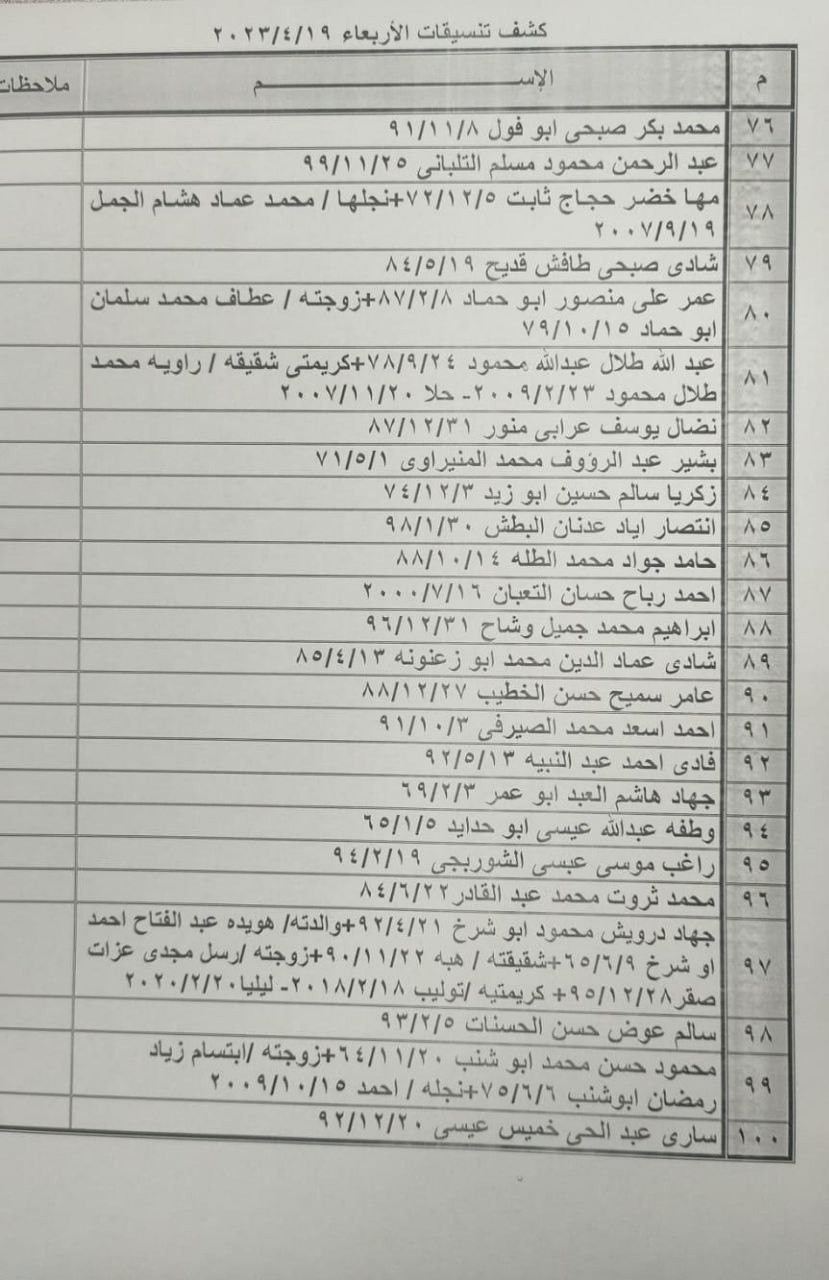 كشف تنسيقات الأربعاء ٢٠٢٣/٤/١٩
م الإســـــــــم ملاحظات
٧٦ محمد بكر صبحى ابو فول ٩١/١١/٨
٧٧ عبد الرحمن محمود مسلم التلبانى ٩٩/١١/٢٥
٧٨ مها خضر حجاج ثابت ٧٢/١٢/٥+نجلها / محمد عماد هشام الجمل
٢٠٠٧/٩/١٩
٧٩ شادى صبحى طافش قديح ٨٤/٥/١٩
٨٠ عمر على منصور ابو حماد ٨٧/٢/٨+زوجته / عطاف محمد سلمان
ابو حماد ٧٩/١٠/١٥
٨١ عبد الله طلال عبدالله محمود ٧٨/٩/٢٤+كريمتى شقيقه / راويه محمد
طلال محمود ٢٠٠٩/٢/٢٣- حلا ٢٠٠٧/١١/٢٠
٨٢ نضال يوسف عرابى منور ٨٧/١٢/٣١
٨٣ بشير عبد الرؤوف محمد المنيراوى ٧١/٥/١
٨٤ زكريا سالم حسين ابو زيد ٧٤/١٢/٣
٨٥ انتصار اياد عدنان البطش ٩٨/١/٣٠
٨٦ حامد جواد محمد الطله ٨٨/١٠/١٤
٨٧ احمد رباح حسان التعبان ٢٠٠٠/٧/١٦
٨٨ ابراهيم محمد جميل وشاح ٩٦/١٢/٣١
٨٩ شادى عماد الدين محمد ابو زعنونه ٨٥/٤/١٣
٩٠ عامر سميح حسن الخطيب ٨٨/١٢/٢٧
٩١ احمد اسعد محمد الصيرفى ٩١/١٠/٣
٩٢ فادى احمد عبد النبيه ٩٢/٥/١٣
٩٣ جهاد هاشم العبد ابو عمر ٦٩/٢/٣
٩٤ وطفه عبدالله عيسى ابو حدايد ٦٥/١/٥
٩٥ راغب موسى عبسى الشوربجي ٩٤/٢/١٩
٩٦ محمد ثروت محمد عبد القادر ٨٤/٦/٢٢
٩٧ جهاد درويش محمود ابو شرخ ٩٢/٤/٢١+والدته/ هويده عبد الفتاح احمد
او شرخ ٦٥/٦/٩+شقيقته / هبه ٩٠/١١/٢٢+زوجته /رسل مجدى عزات
صقر٩٥/١٢/٢٨+ كريمتيه /توليب ٢٠١٨/٢/١٨- ليليا٢٠٢٠/٢/٢٠
٩٨ سالم عوض حسن الحسنات ٩٣/٢/٥
٩٩ محمود حسن محمد ابو شنب ٦٤/١١/٢٠+زوجته /ابتسام زياد
رمضان ابوشنب ٧٥/٦/٦+نجله / احمد ٢٠٠٩/١٠/١٥
١٠٠ سارى عبد الحى خميس عيسى ٩٢/١٢/٢٠